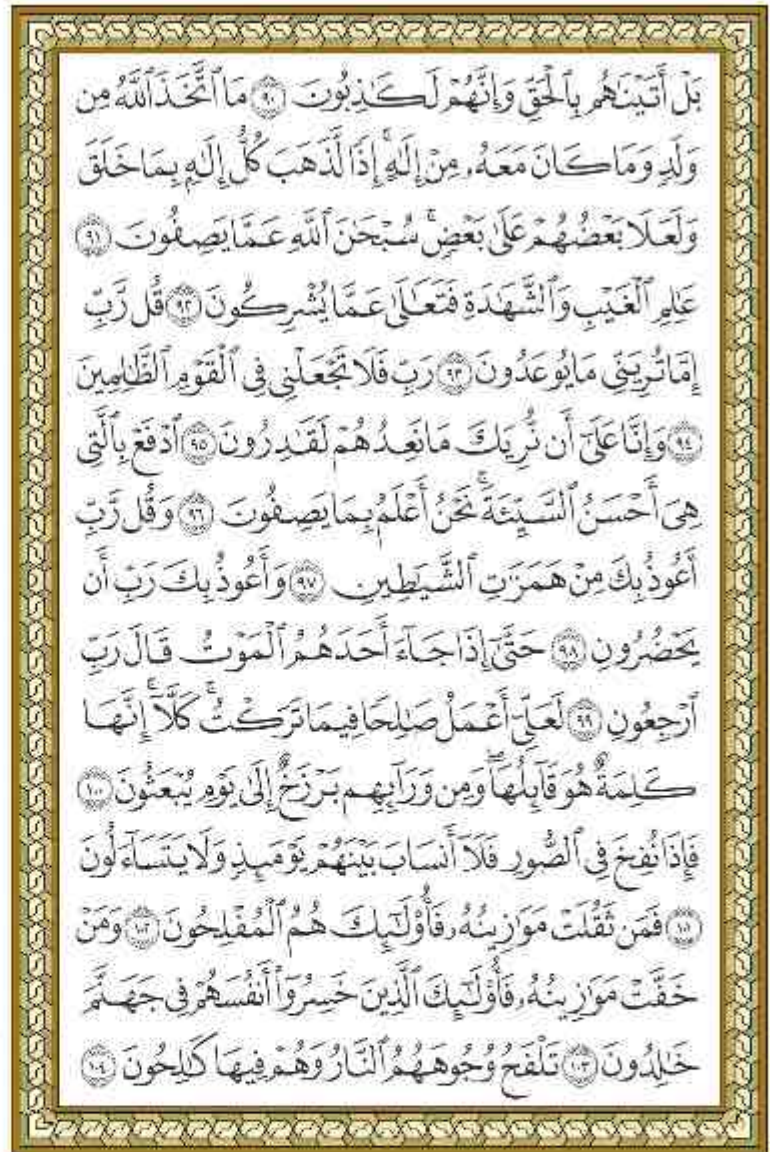 بَلْ أَتَيْنَٰهُم بِٱلْحَقِّ وَإِنَّهُمْ لَكَٰذِبُونَ ٩٠ مَا ٱتَّخَذَ ٱللَّهُ مِن
وَلَدٍ وَمَا كَانَ مَعَهُۥ مِنْ إِلَٰهٍ ۚ إِذًا لَّذَهَبَ كُلُّ إِلَٰهٍۭ بِمَا خَلَقَ
وَلَعَلَا بَعْضُهُمْ عَلَىٰ بَعْضٍ ۚ سُبْحَٰنَ ٱللَّهِ عَمَّا يَصِفُونَ ٩١
عَٰلِمِ ٱلْغَيْبِ وَٱلشَّهَٰدَةِ فَتَعَٰلَىٰ عَمَّا يُشْرِكُونَ ٩٢ قُل رَّبِّ
إِمَّا تُرِيَنِّى مَا يُوعَدُونَ ٩٣ رَبِّ فَلَا تَجْعَلْنِى فِى ٱلْقَوْمِ ٱلظَّٰلِمِينَ
٩٤ وَإِنَّا عَلَىٰٓ أَن نُّرِيَكَ مَا نَعِدُهُمْ لَقَٰدِرُونَ ٩٥ ٱدْفَعْ بِٱلَّتِى
هِىَ أَحْسَنُ ٱلسَّيِّئَةَ ۚ نَحْنُ أَعْلَمُ بِمَا يَصِفُونَ ٩٦ وَقُل رَّبِّ
أَعُوذُ بِكَ مِنْ هَمَزَٰتِ ٱلشَّيَٰطِينِ ٩٧ وَأَعُوذُ بِكَ رَبِّ أَن
يَحْضُرُونِ ٩٨ حَتَّىٰٓ إِذَا جَآءَ أَحَدَهُمُ ٱلْمَوْتُ قَالَ رَبِّ
ٱرْجِعُونِ ٩٩ لَعَلِّىٓ أَعْمَلُ صَٰلِحًا فِيمَا تَرَكْتُ ۚ كَلَّآ ۚ إِنَّهَا
كَلِمَةٌ هُوَ قَآئِلُهَا ۖ وَمِن وَرَآئِهِم بَرْزَخٌ إِلَىٰ يَوْمِ يُبْعَثُونَ ١٠٠
فَإِذَا نُفِخَ فِى ٱلصُّورِ فَلَآ أَنسَابَ بَيْنَهُمْ يَوْمَئِذٍ وَلَا يَتَسَآءَلُونَ
١٠١ فَمَن ثَقُلَتْ مَوَٰزِينُهُۥ فَأُو۟لَٰٓئِكَ هُمُ ٱلْمُفْلِحُونَ ١٠٢ وَمَنْ
خَفَّتْ مَوَٰزِينُهُۥ فَأُو۟لَٰٓئِكَ ٱلَّذِينَ خَسِرُوٓا۟ أَنفُسَهُمْ فِى جَهَنَّمَ
خَٰلِدُونَ ١٠٣ تَلْفَحُ وُجُوهَهُمُ ٱلنَّارُ وَهُمْ فِيهَا كَٰلِحُونَ ١٠٤